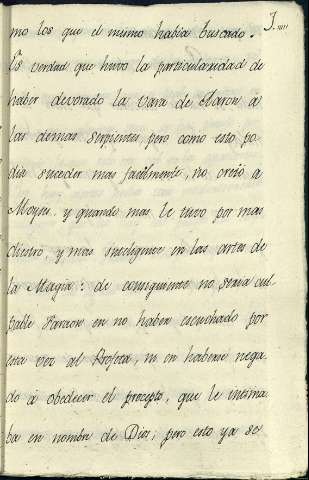 mo los que el mismo habia buscado.
Es verdad que huvo la particularidad de
haber devorado la vara de Aaron á
las demas serpientes, pero como esto po
dia suceder mas facilmente, no creió a
Moyses. y quando mas le tuvo por mas
diestro, y mas inteligente en las artes de
la Magia: de consiguiente no seria cul
pable Faraon en no haber escuchado por
esta vez al Profeta, ni en haberse nega
do á obedecer el precepto, que le intima
ba en nombre de Dios; pero esto ya se